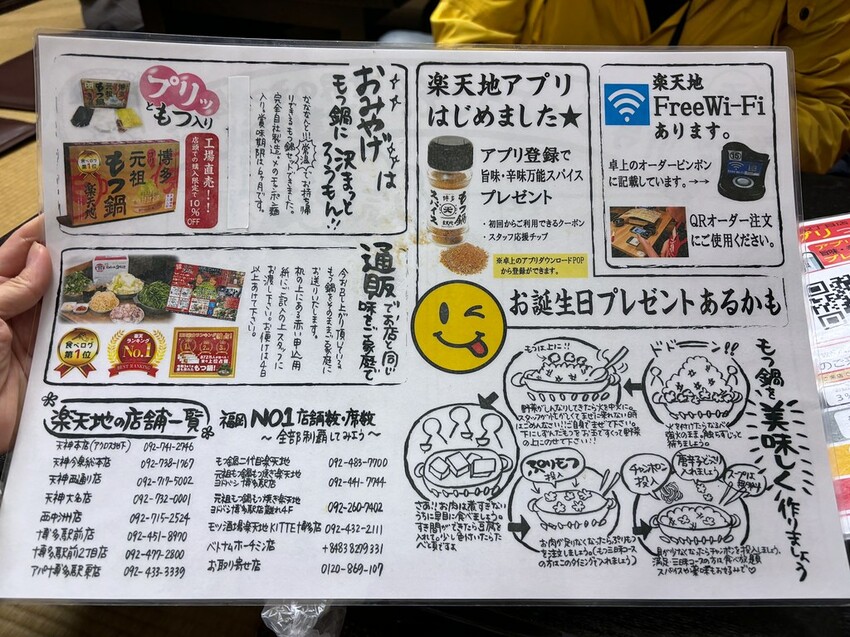 おみやげは
もつ鍋に決まっと
ろうもん!!
プリッ
ともつ入り
工場直売!!!
店頭での購入限定で10%
OFF
博多
元祖
もつ鍋
楽天地
なななんと!!!常温でお持ち帰
りできるもつ鍋セットできました。
完全自社製造、〆のチャンポン麺
入り。賞味期限は6ヶ月です。
楽天地アプリ
はじめました★
アプリ登録で
旨味・辛味万能スパイス
プレゼント
・初回からご利用できるクーポン
・スタッフ応援チップ
※卓上のアプリダウンロードPOP
から登録ができます。
楽天地
FreeWi-Fi
あります。
卓上のオーダーピンポン
に記載しています。→→
QRオーダー注文
にご使用ください。
お誕生日プレゼントあるかも
通販でお店と同じ
味をご家庭で
今お召し上がり頂いている
もつ鍋をそのままご家庭に
お送りいたします。
机の上にある赤い申込用
紙にご記入の上スタッフに
お渡し下さい。お届けは4日
以上あけて下さい。
食べログ
第1位
楽天
ランキング
No.1
楽天地の店舗一覧
天神本店(アクロス地下) 092-741-2746
天神今泉総本店 092-738-1767
天神西通り店 092-717-5002
天神大名店 092-732-0001
西中洲店 092-715-2524
博多駅前店 092-451-8970
博多駅前2丁目店 092-477-2800
アパ博多駅東店 092-433-3339
福岡NO1店舗数・席数
~全部制覇してみよう~
もつ鍋二代目楽天地 092-483-7700
元祖もつ鍋もつ焼き楽天地
ヨドバシ博多駅店 092-441-7744
元祖もつ鍋もつ焼き楽天地
ヨドバシ博多駅店離れ4F 092-260-7402
モツ酒場楽天地KITTE博多店 092-432-2111
ベトナムホーチミン店 +84838279331
お取り寄せ店 0120-869-107
もつ鍋を美味しく作りましょう
ドドーン!!
火を付けたらなるべく
強火のまま、触らずじっと
待ちましょう。
もつは上に!!
野菜がしんなりしてきたら火を中火に。
スタッフが忙がしくてまぜに来れない時は
ごめんなさい!!ご自身でまぜて下さい。
下にしずんだもつをお玉ですくって野菜
の上にのせて下さい!!
さあ!!お肉は煮すぎない
うちに早目に食べましょう。
すき間ができたら豆腐を
入れても少し色付いたらた
べ頃ですよ
ぷりもつ
投入
お肉が足りなくなったらぷりもつ
を注文しましょう。(もつ三昧コース
の方はこのタイミングで入れましょう)
チャンポン
投入
唐辛子どっさり
入れましょう
スープは
具が少なくなったらチャンポンを投入しましょう。
満足・三昧コースの方は食べ放題
スパイスや薬味もおすすめ♡